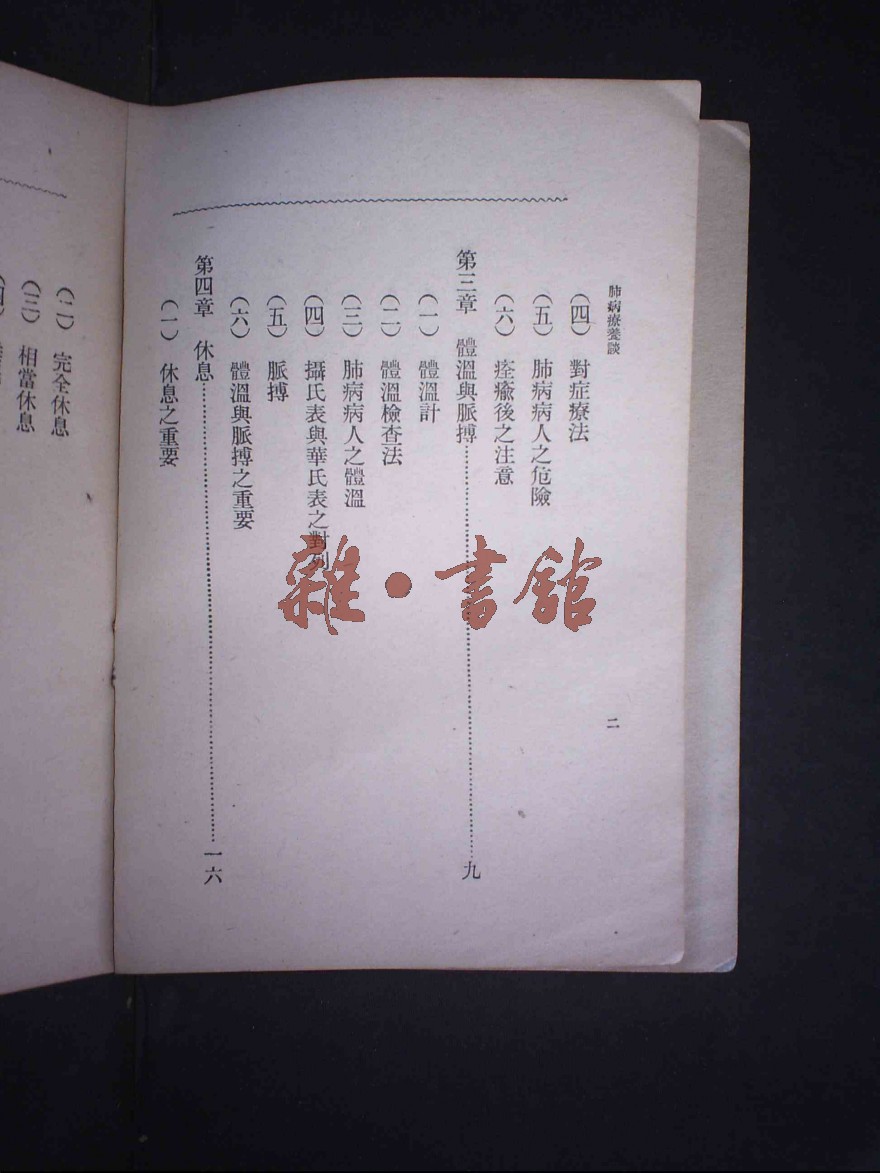 肺病療養談
(四) 對症療法
(五) 肺病病人之危險
(六) 痊瘉後之注意
第三章 體溫與脈搏………九
(一) 體溫計
(二) 體溫檢查法
(三) 肺病病人之體溫
(四) 攝氏表與華氏表之對列
(五) 脈搏
(六) 體溫與脈搏之重要
第四章 休息………一六
(一) 休息之重要
二
(二) 完全休息
(三) 相當休息
(四)
雜·書館